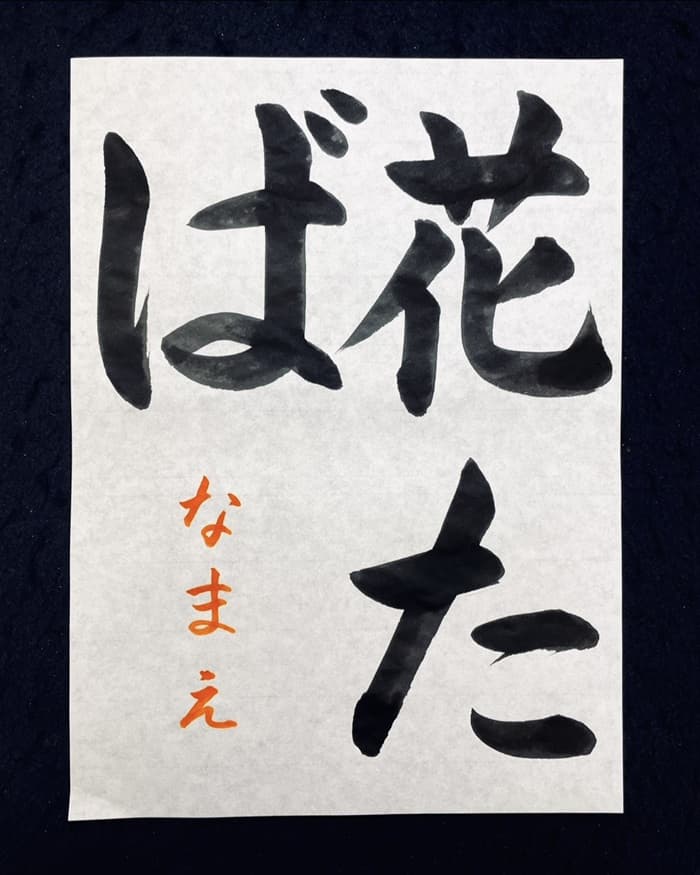 花た
ば
なまえ